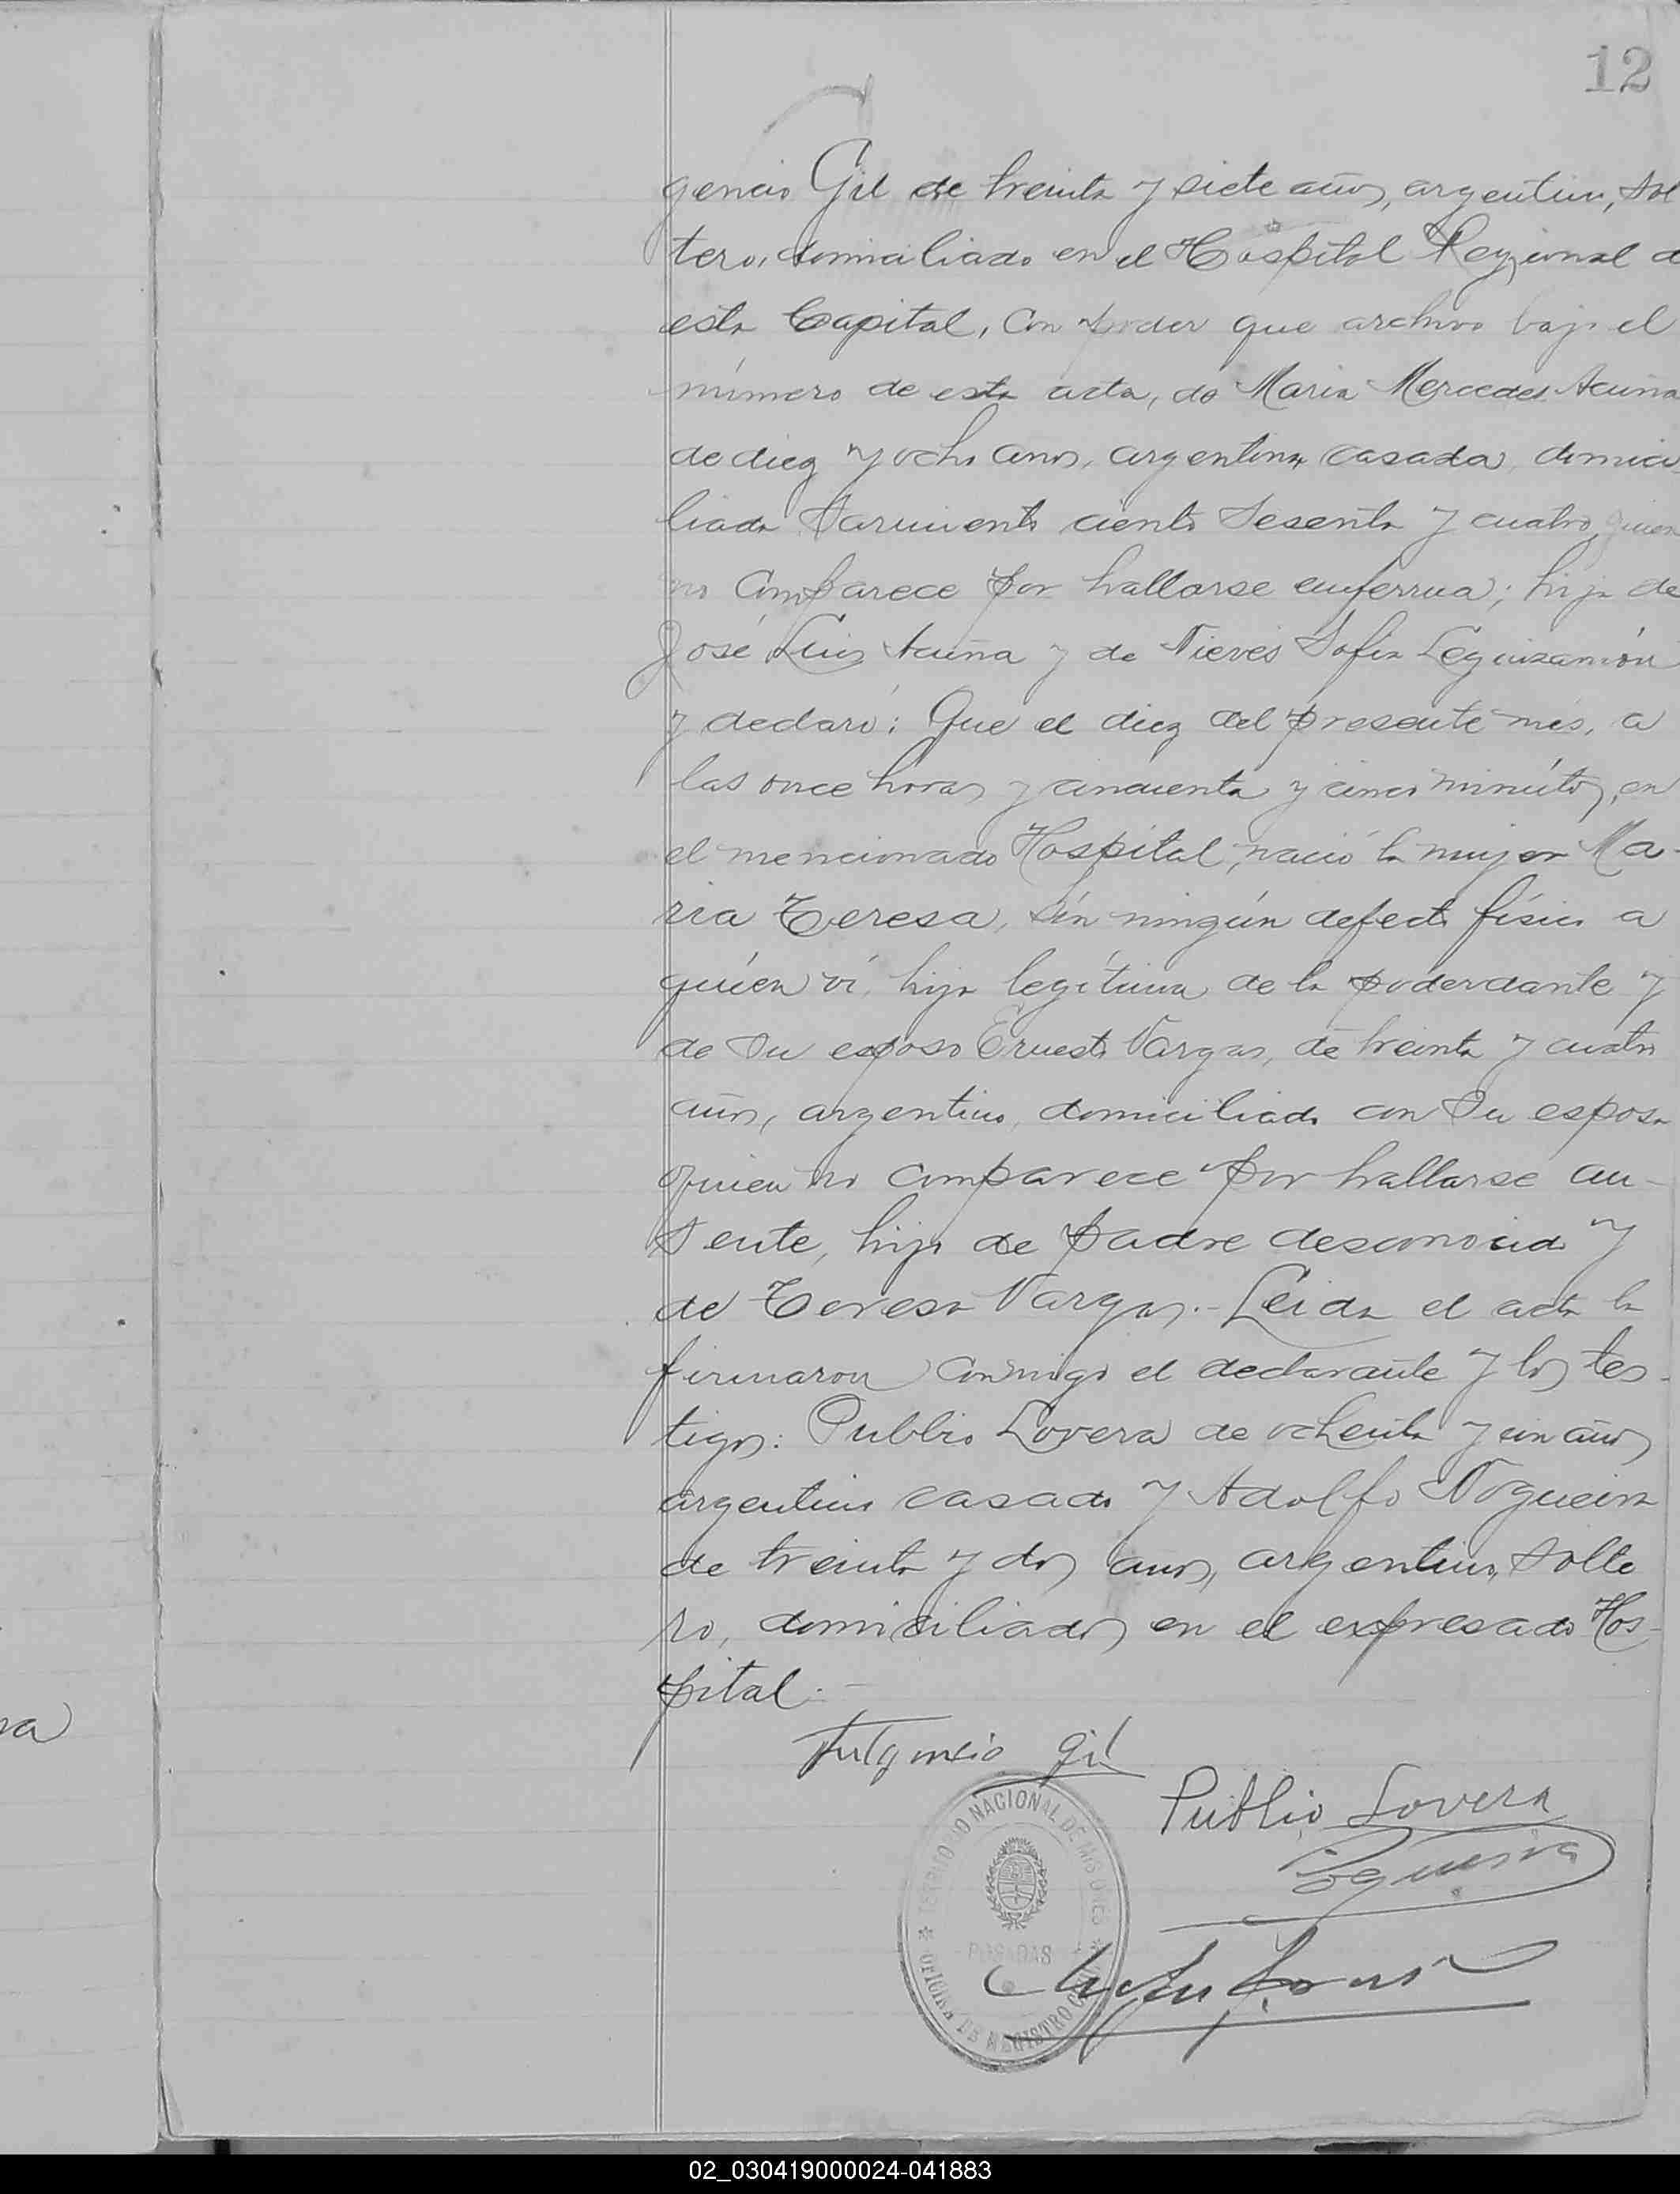 12
gencio Gil de treinta y siete años, argentino, sol
tero, domiciliado en el Hospital Regional d
esta Capital, con poder que archivo bajo el
número de esta acta, de Maria Mercedes Acuña
de diez y ocho años, argentina, casada, domici
liada Sarmiento ciento sesenta y cuatro, quien
no comparece por hallarse enferma; hija de
José Luis Acuña y de Nieves Sofia Leguizamón
y declaró: Que el diez del presente mes, a
las once horas y cincuenta y cinco minutos, en
el mencionado Hospital, nació la mujer Ma-
ria Teresa, sin ningún defecto físico a
quien ví, hija legítima de la poderdante y
de su esposo Ernesto Vargas, de treinta y cuatro
años, argentino, domiciliado con su esposa
quien no comparece por hallarse au-
sente, hijo de padre desconocido y
de Teresa Vargas.- Leida el acta la
firmaron conmigo el declarante y los tes-
tigos: Publio Lovera de ochenta y un años
argentino casado y Adolfo Nogueira
de treinta y dos años, argentino, solte
ro, domiciliados en el expresado Hos-
pital.-
Fulgencio Gil
Publio Lovera
Nogueira
TERRITORIO NACIONAL DE MISIONES
POSADAS
OFICINA DE REGISTRO CIVIL
va
02_030419000024-041883